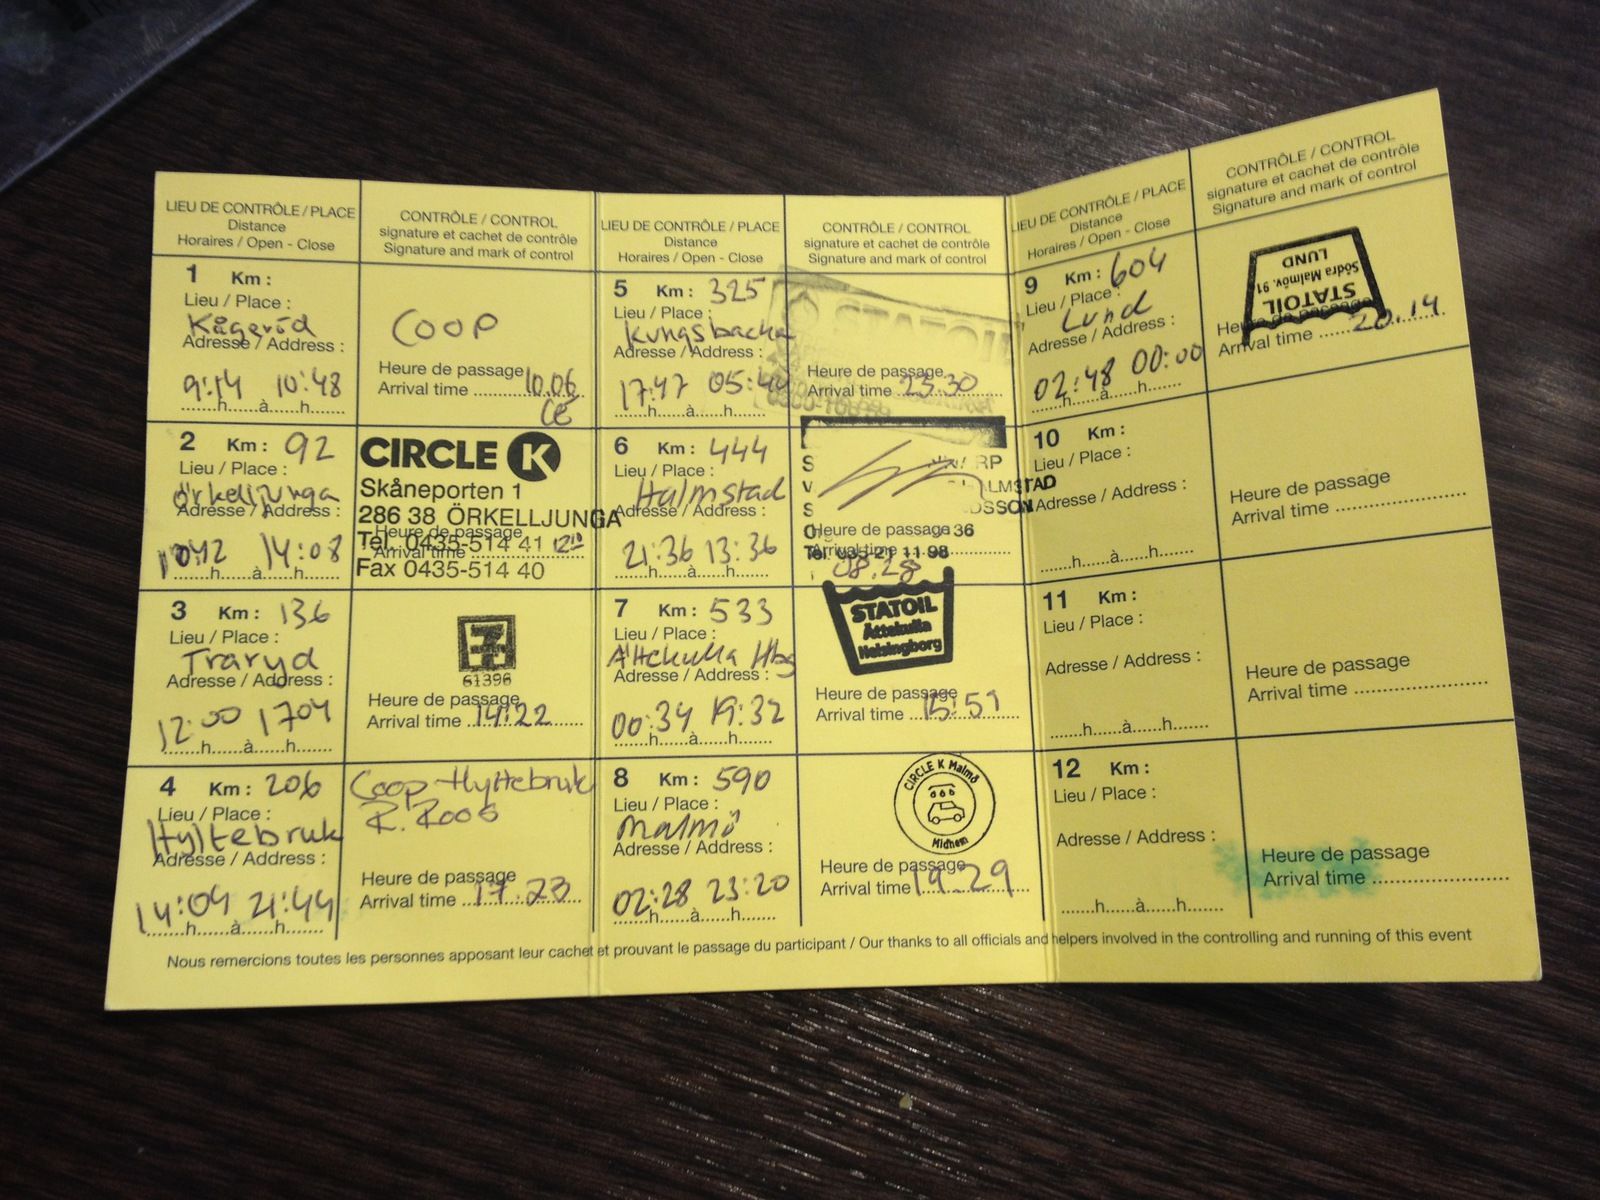 LIEU DE CONTRÔLE / PLACE
Distance
Horaires / Open - Close
CONTRÔLE / CONTROL
signature et cachet de contrôle
Signature and mark of control
1 Km :
Lieu / Place :
Kågeröd
Adresse / Address :
9:14 10:48
......h......à......h......
COOP
Heure de passage
Arrival time 10.06
CE
2 Km : 92
Lieu / Place :
Örkelljunga
Adresse / Address :
14:08
......h......à......h......
CIRCLE K
Skåneporten 1
286 38 ÖRKELLJUNGA
Heure de passage
Tel. 0435-514 41
Arrival time 12 10
Fax 0435-514 40
3 Km : 136
Lieu / Place :
Traryd
Adresse / Address :
12:00 1704
......h......à......h......
7
61396
Heure de passage
Arrival time 14:22
4 Km : 206
Lieu / Place :
Hyltebruk
Adresse / Address :
14:04 21:44
......h......à......h......
Coop Hyltebruk
R. Roos
Heure de passage
Arrival time 17:23
LIEU DE CONTRÔLE / PLACE
Distance
Horaires / Open - Close
CONTRÔLE / CONTROL
signature et cachet de contrôle
Signature and mark of control
5 Km : 325
Lieu / Place :
Kungsbacka
Adresse / Address :
17:47 05:44
......h......à......h......
STATOIL
Heure de passage
Arrival time 23.30
6 Km : 444
Lieu / Place :
Halmstad
Adresse / Address :
21:36 13:36
......h......à......h......
Heure de passage 36
Arrival time
Tel. 035-21 11 98
08.28
7 Km : 533
Lieu / Place :
Ättekulla Hbg
Adresse / Address :
00:34 19:32
......h......à......h......
STATOIL
Ättekulla
Helsingborg
Heure de passage
Arrival time 15:51
8 Km : 590
Lieu / Place :
Malmö
Adresse / Address :
02:28 23:20
......h......à......h......
CIRCLE K Malmö
Midhem
Heure de passage
Arrival time 19.29
LIEU DE CONTRÔLE / PLACE
Distance
Horaires / Open - Close
CONTRÔLE / CONTROL
signature et cachet de contrôle
Signature and mark of control
9 Km : 604
Lieu / Place :
Lund
Adresse / Address :
02:48 00:00
......h......à......h......
STATOIL
Södra Malmöv. 91
LUND
Heure de passage
Arrival time 20.14
10 Km :
Lieu / Place :
Adresse / Address :
......h......à......h......
Heure de passage
Arrival time
11 Km :
Lieu / Place :
Adresse / Address :
......h......à......h......
Heure de passage
Arrival time
12 Km :
Lieu / Place :
Adresse / Address :
......h......à......h......
Heure de passage
Arrival time
Nous remercions toutes les personnes apposant leur cachet et prouvant le passage du participant / Our thanks to all officials and helpers involved in the controlling and running of this event